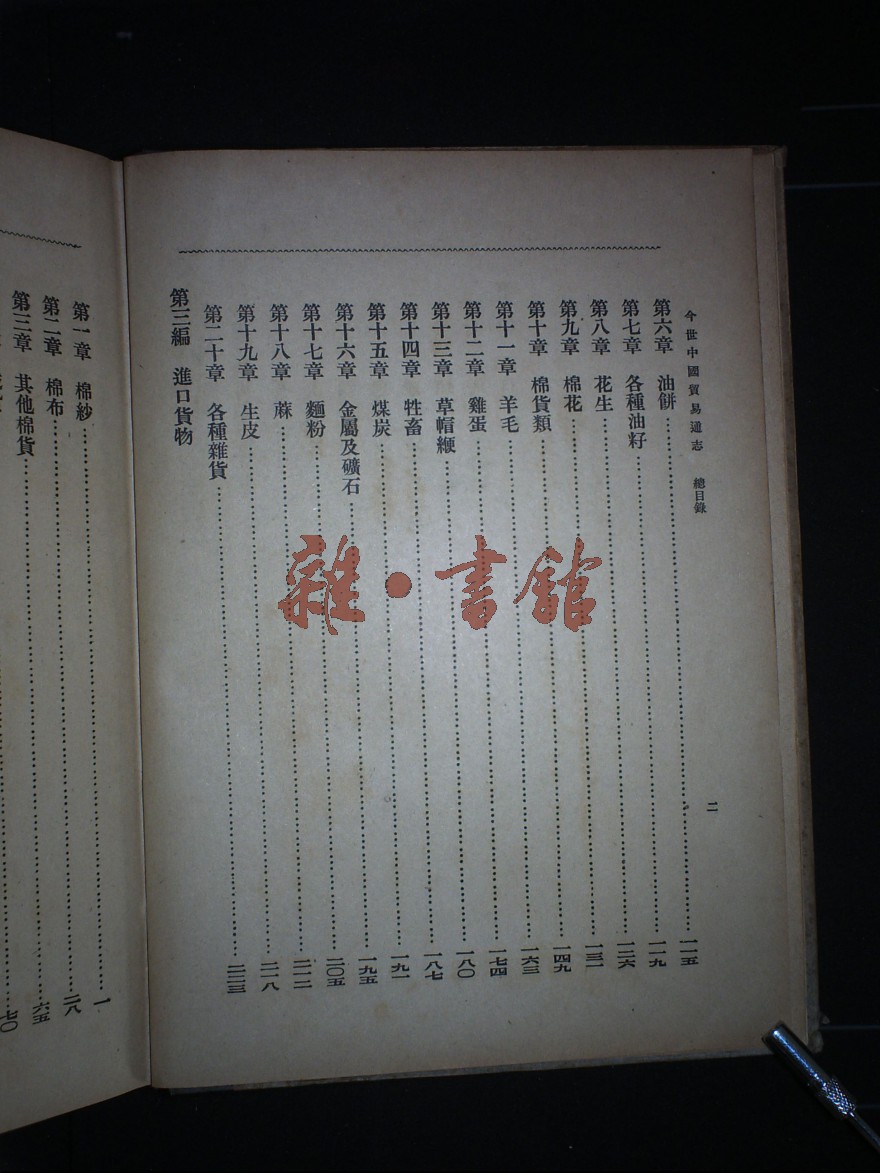 今世中國貿易通志 總目錄
二
第六章 油餅 一一五
第七章 各種油籽 一一九
第八章 花生 一二六
第九章 棉花 一三一
第十章 棉貨類 一四九
第十一章 羊毛 一六三
第十二章 雞蛋 一七四
第十三章 草帽緶 一八〇
第十四章 牲畜 一八七
第十五章 煤炭 一九一
第十六章 金屬及礦石 一九五
第十七章 麵粉 二〇五
第十八章 蔴 二一二
第十九章 生皮 二一八
第二十章 各種雜貨 二二三
第三編 進口貨物
第一章 棉紗 一
第二章 棉布 二八
第三章 其他棉貨 六五
七〇
雜·書館